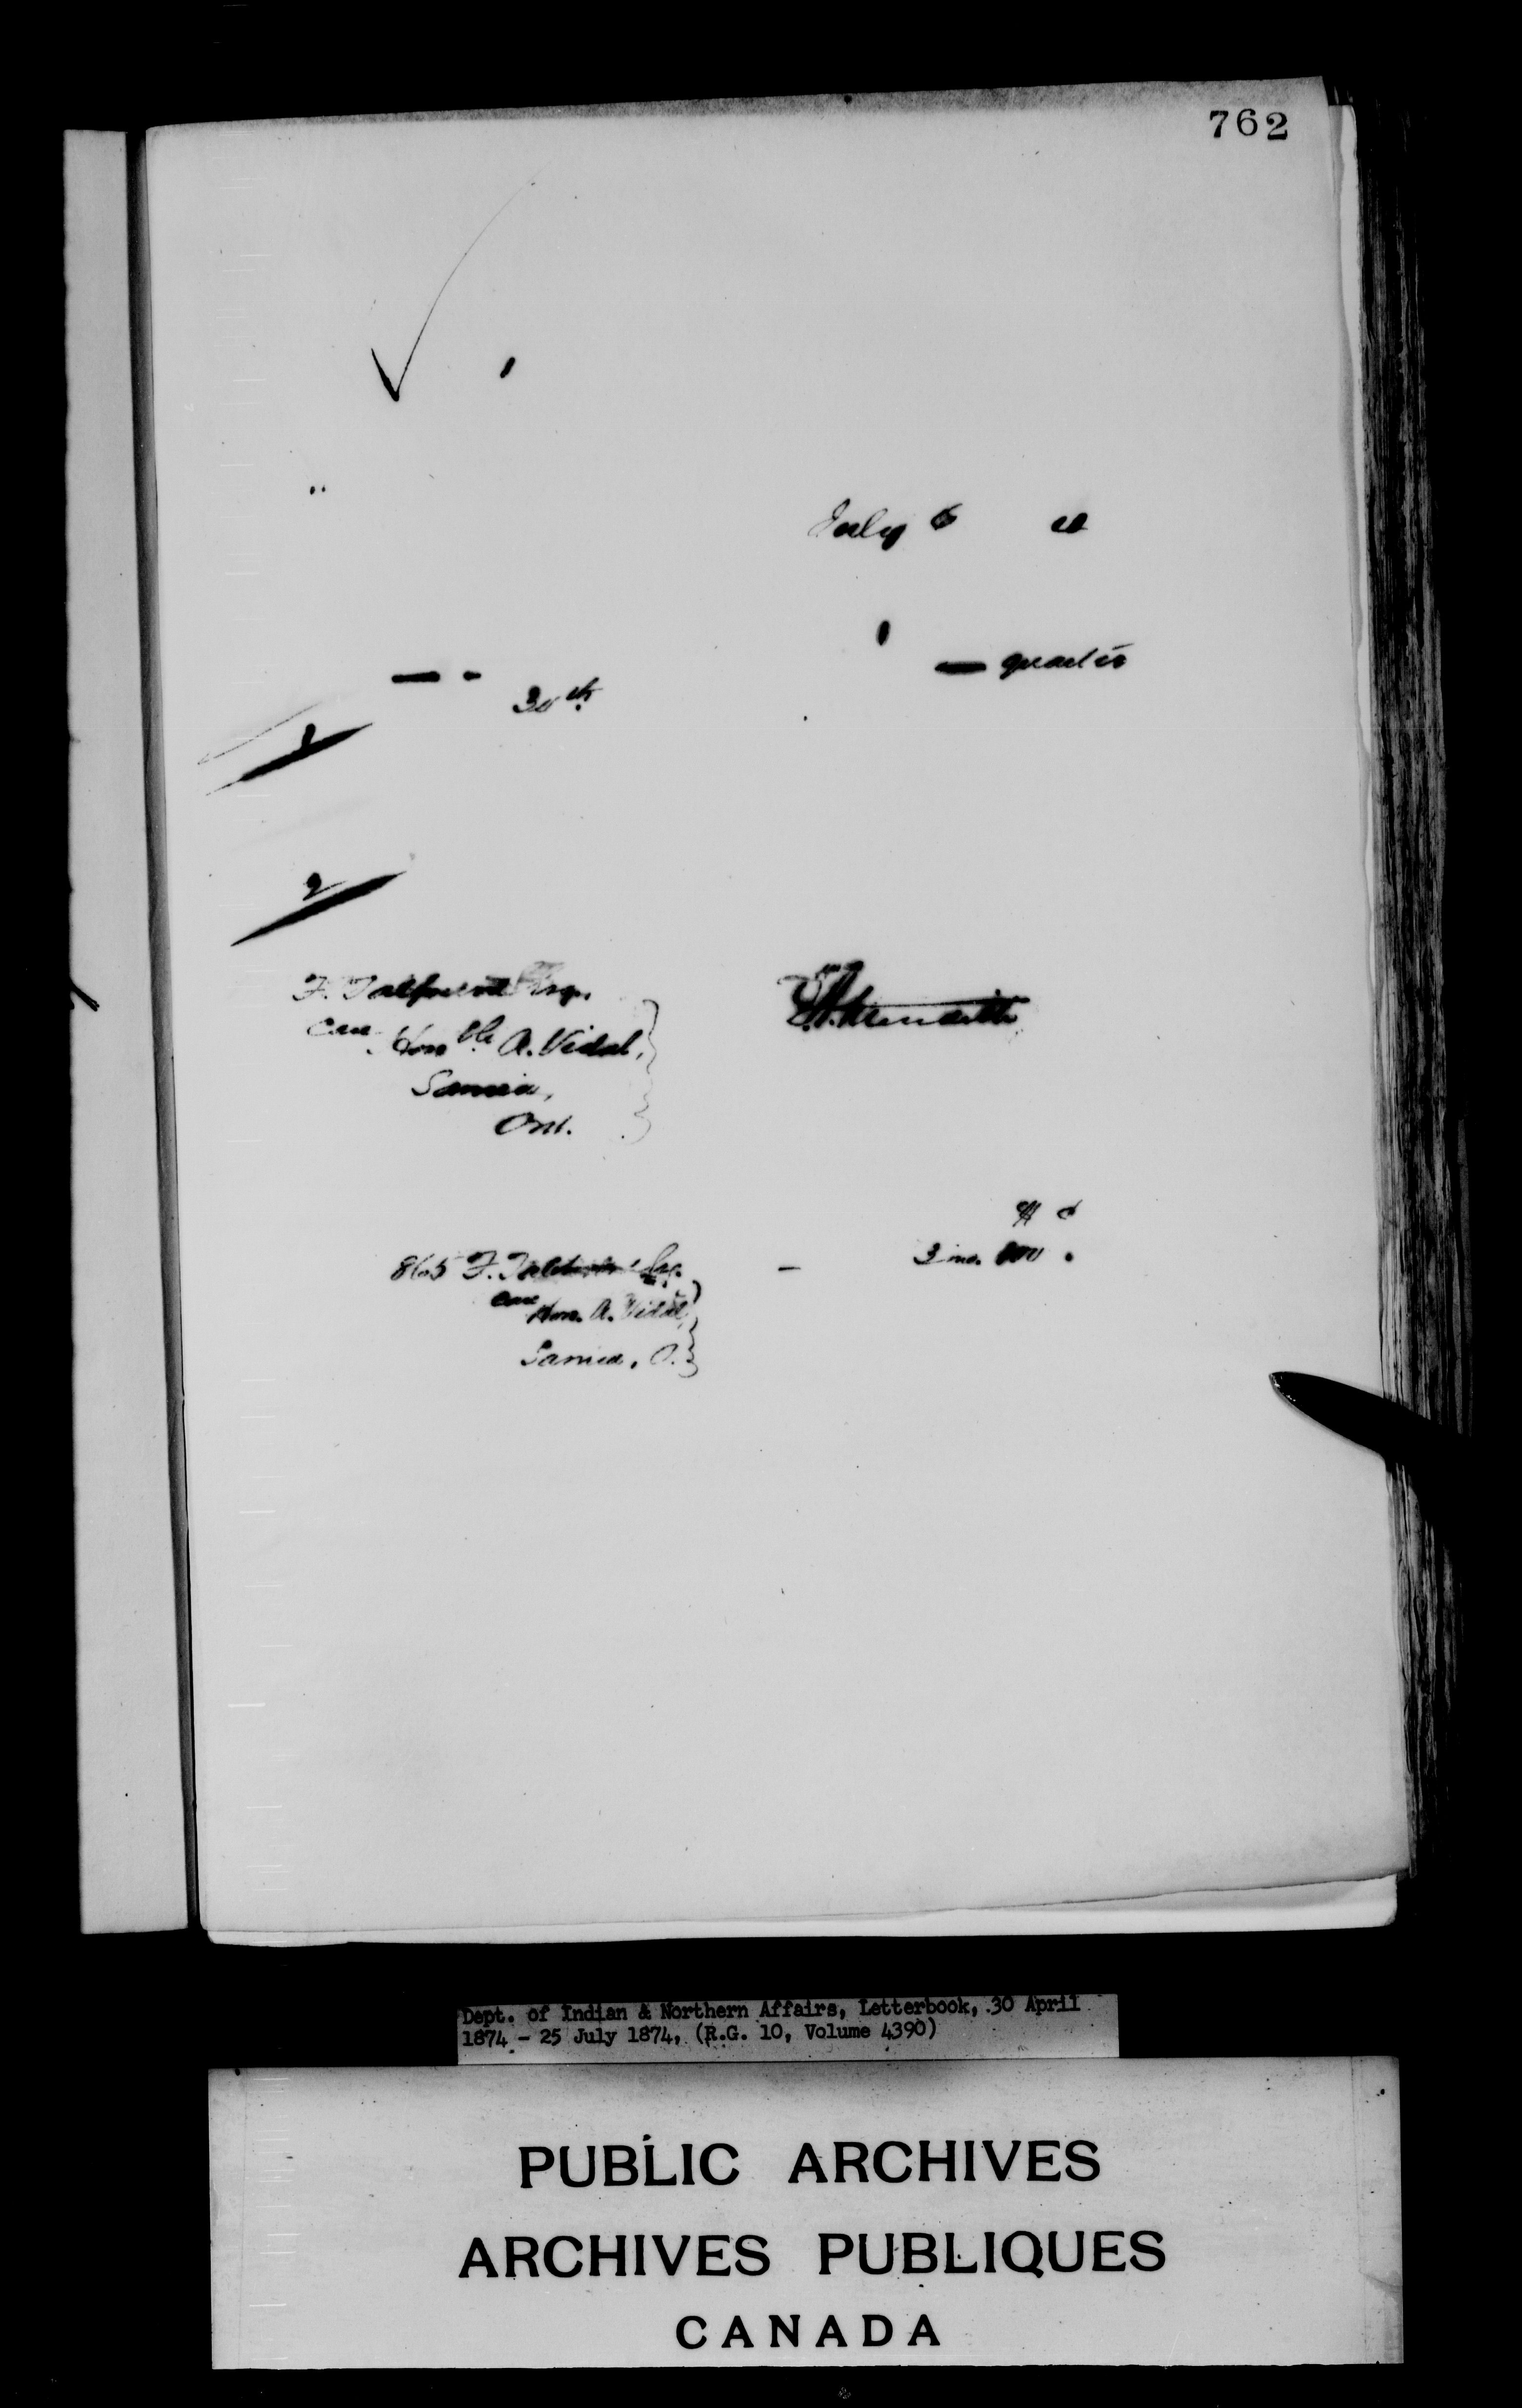 762
July 6
quarter
30th
1
2
F. Talfourd Esq.
Care Honble A. Vidal,
Sarnia,
Ont.
E.A. Meredith
$ c
865 F. Talfourd Esq. — 3 mo.
Care Hon. A. Vidal,
Sarnia, O.
Dept. of Indian & Northern Affairs, Letterbook, 30 April
1874 - 25 July 1874, (R.G. 10, Volume 4390)
PUBLIC ARCHIVES
ARCHIVES PUBLIQUES
CANADA